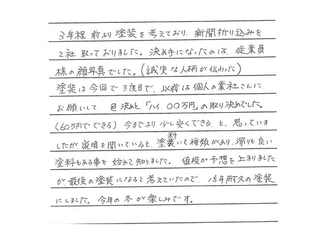 3年程前より塗装を考えており、新聞折り込みを
2社取っておりました。決め手になったのは、従業員
様の顔写真でした。(誠実な人柄が伝わった)
塗装は今回で3度目で、以前は個人の業社さんに
お願いして、色決めと「ハイ00万円」の取り決めでした。
(60万円でできる)今までより少し安くできる、と、思っていま
したが説明を聞いていると、塗料にも種類があり、より良い
塗料もある事を始めて知りました。値段が予想を上まりました
が最後の塗装になると考えていたので、15年耐久の塗装
にしました。今年の冬が楽しみです。